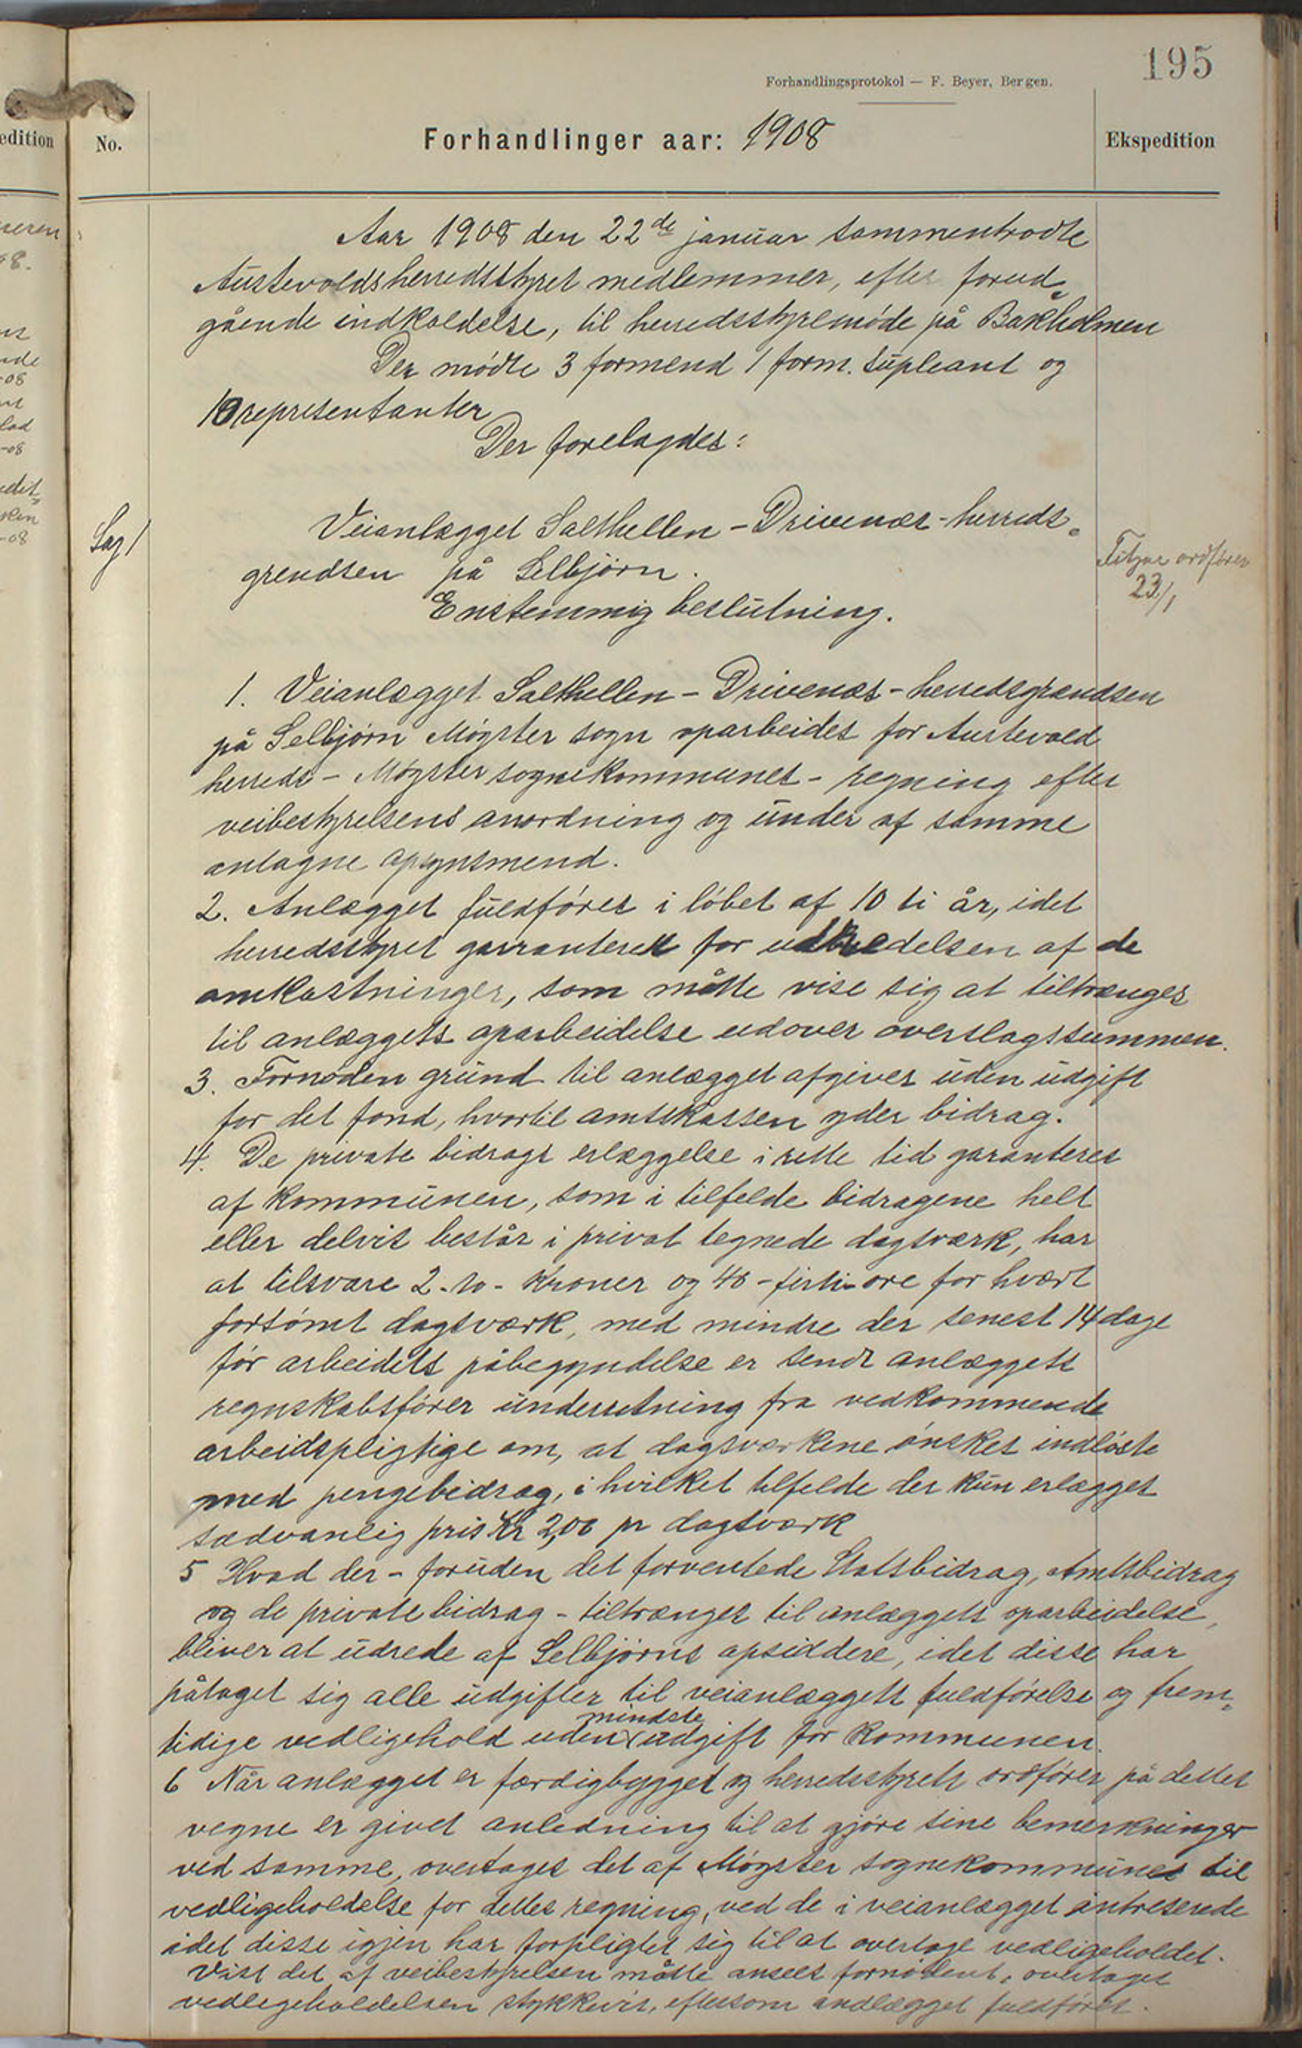 195
Forhandlingsprotokol — F. Beyer, Bergen.
edition
No.
Forhandlinger aar: 1908
Ekspedition
Aar 1908 den 22de januar sammentrodte
Austevoldsherredsstyret medlemmer, efter forud-
gående indkaldelse, til herredsstyremøde på Bakholmen
Der mødte 3 formend 1 form. supleant og
10 representanter
Der forelagdes:
Sag 1
Veianlægget Salthellen - Drivenes - herreds-
grendsen på Selbjørn.
Enstemmig beslutning.
ordfører
23/1
1. Veianlægget Salthellen - Drivenæs - herredsgrændsen
på Selbjørn Møgster sogn oparbeides for Austevold
herreds - Møgster sognekommunes - regning efter
veibestyrelsens anordning og under af samme
antagne opsynsmend.
2. Anlægget fuldføres i løbet af 10 ti år, idet
herredsstyret garranterer for udredelsen af de
omkostninger, som måtte vise sig at tiltrænges
til anlæggets oparbeidelse udover overslagssummen.
3. Fornøden grund til anlægget afgives uden udgift
for det fond, hvortil amtskassen yder bidrag.
4. De private bidrags erlæggelse i rette tid garanteres
af kommunen, som i tilfelde bidragene helt
eller delvis består i privat tegnede dagsværk, har
at tilsvare 2 - to - kroner og 40 - firti - øre for hvært
forsømt dagsværk, med mindre der senest 14 dage
før arbeidets påbegyndelse er sendt anlæggets
regnskabsfører underretning fra vedkommende
arbeidspligtige om, at dagsværkene ønskes indløste
med pengebidrag, i hvilket tilfelde der kun erlægges
sædvanlig pris Kr 2,00 pr dagsværk
5 Hvad der - foruden det forventede Statsbidrag, Amtsbidrag
og de private bidrag - tiltrænges til anlæggets oparbeidelse,
bliver at udrede af Selbjørns opsiddere, idet disse har
påtaget sig alle udgifter til veianlæggets fuldførelse og frem-
tidige vedligehold uden mindste udgift for kommunen.
6 Når anlægget er færdigbygget og herredsstyrets ordfører på dettes
vegne er givet anledning til at gjøre sine bemerkninger
ved samme, overtages det af Møgster sognekommunes til
vedligeholdelse for dettes regning, ved de i veianlægget intreserede
idet disse igjen har forpligtet sig til at overtage vedligeholdet.
Vist det af veibestyrelsen måtte ansees fornødent, overtages
vedligeholdelsen stykkevis, eftersom andlægget fuldføres.